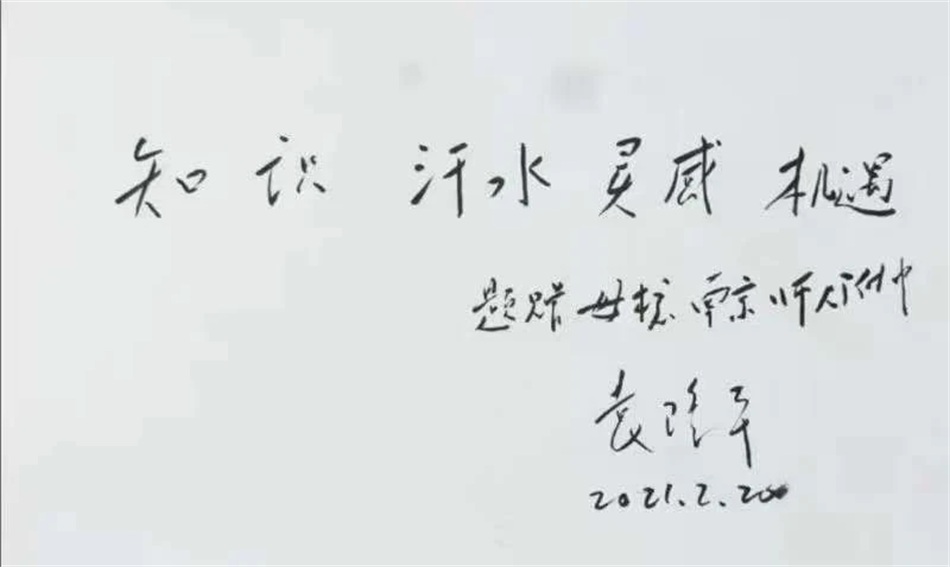 知识 汗水 灵感 机遇
题赠母校南京师大附中
袁隆平
2021.2.20